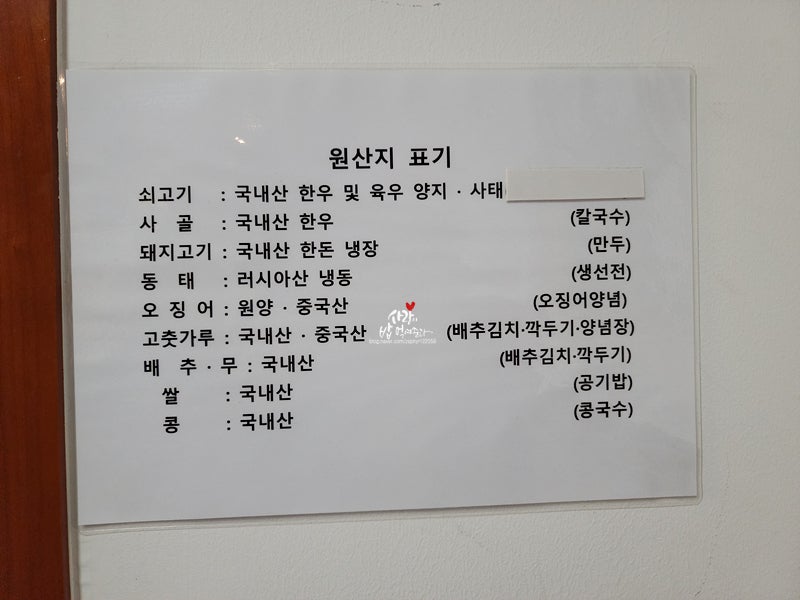 원산지 표기
쇠고기 : 국내산 한우 및 육우 양지 · 사태(
사 골 : 국내산 한우 (칼국수)
돼지고기 : 국내산 한돈 냉장 (만두)
동 태 : 러시아산 냉동 (생선전)
오 징 어 : 원양 · 중국산 (오징어양념)
고춧가루 : 국내산 · 중국산 (배추김치·깍두기·양념장)
배 추 · 무 : 국내산 (배추김치·깍두기)
쌀 : 국내산 (공기밥)
콩 : 국내산 (콩국수)